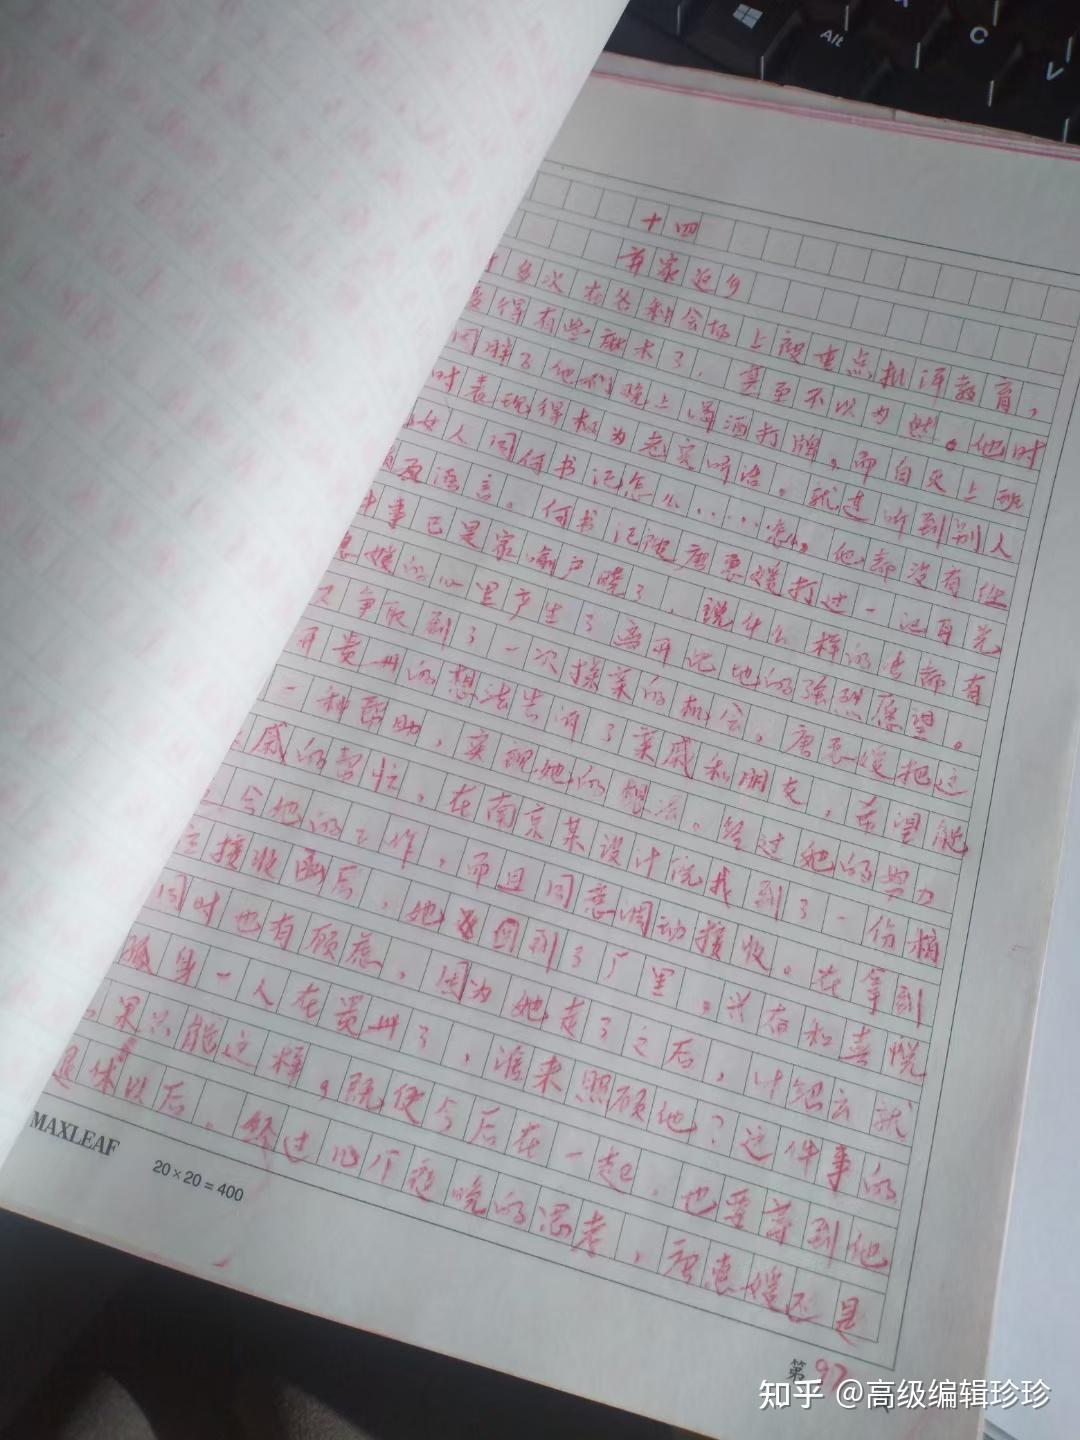 Alt
C
V
十四
弃家返乡
多次在各种会场上被重点批评教育,
得有些麻木了,甚至不以为然。他时
他们晚上喝酒打牌,而白天上班
时表现得极为老实听话。就连听到别人
女人问何书记怎么……怎么,他都没有任
何反语言。何书记被唐惠媛打过一记耳光
事已是家喻户晓了,说什么样的话都有
媛的心里产生了离开记地的强烈愿望。
又争取到了一次探亲的机会。唐惠媛把这
开贵州的想法告诉了亲戚和朋友,希望能
一种帮助,实现她的想法。经过她的努力
戚的帮忙,在南京某设计院找到了一份稍
合她的工作,而且同意调动接收。在拿到
接收函后,她回到了厂里,兴奋和喜悦
同时也有顾虑,因为她走了之后,叶绍云就
孤身一人在贵州了,谁来照顾他?这件事的
果只能这样,既使今后在一起,也要等到他
退休以后。经过几个夜晚的思考,唐惠媛还是
MAXLEAF
20×20=400
第97
知乎 @高级编辑珍珍